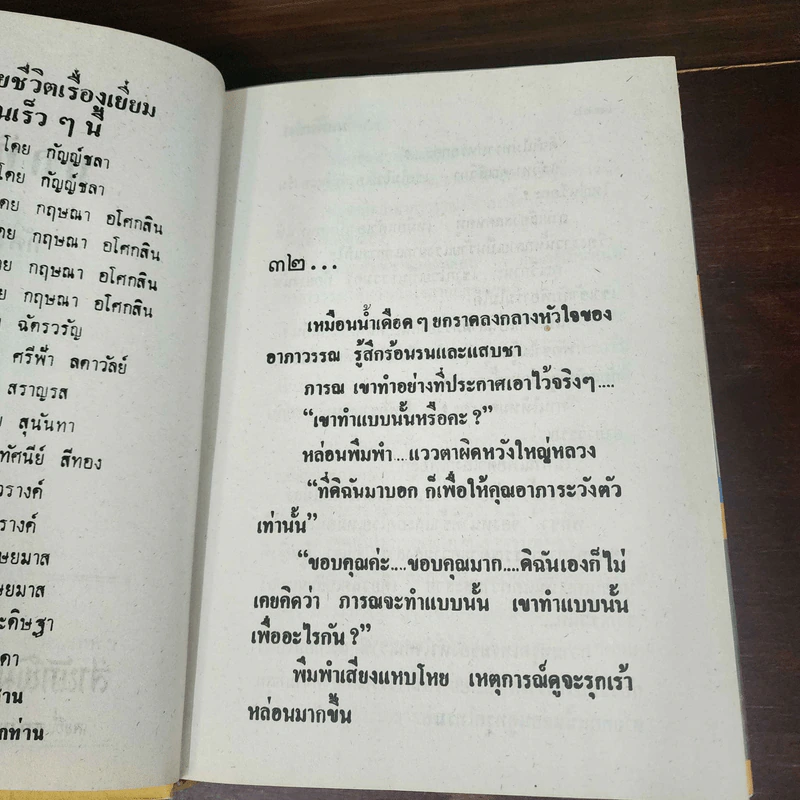 ยชีวิตเรื่องเยี่ยม
นเร็ว ๆ นี้
โดย กัญญ์ชลา
โดย กัญญ์ชลา
ดย กฤษณา อโศกสิน
ดย กฤษณา อโศกสิน
ดย กฤษณา อโศกสิน
ย กฤษณา อโศกสิน
ฉัตรวรัญ
ศรีฟ้า ลดาวัลย์
สราญรส
สุนันทา
ทัศนีย์ สีทอง
วรางค์
รางค์
ษยมาส
ษยมาส
ะดิษฐา
ดา
ซาน
กท่าน
๓๒...
เหมือนน้ำเดือด ๆ ยกราดลงกลางหัวใจของ
อาภาวรรณ รู้สึกร้อนรนและแสบชา
ภารณ เขาทำอย่างที่ประกาศเอาไว้จริงๆ....
“เขาทำแบบนั้นหรือคะ ?”
หล่อนพึมพำ...แววตาผิดหวังใหญ่หลวง
“ที่ดิฉันมาบอก ก็เพื่อให้คุณอาภาระวังตัว
เท่านั้น”
“ขอบคุณค่ะ....ขอบคุณมาก....ดิฉันเองก็ไม่
เคยคิดว่า ภารณจะทำแบบนั้น เขาทำแบบนั้น
เพื่ออะไรกัน ?”
พึมพำเสียงแหบโหย เหตุการณ์ดูจะรุกเร้า
หล่อนมากขึ้น